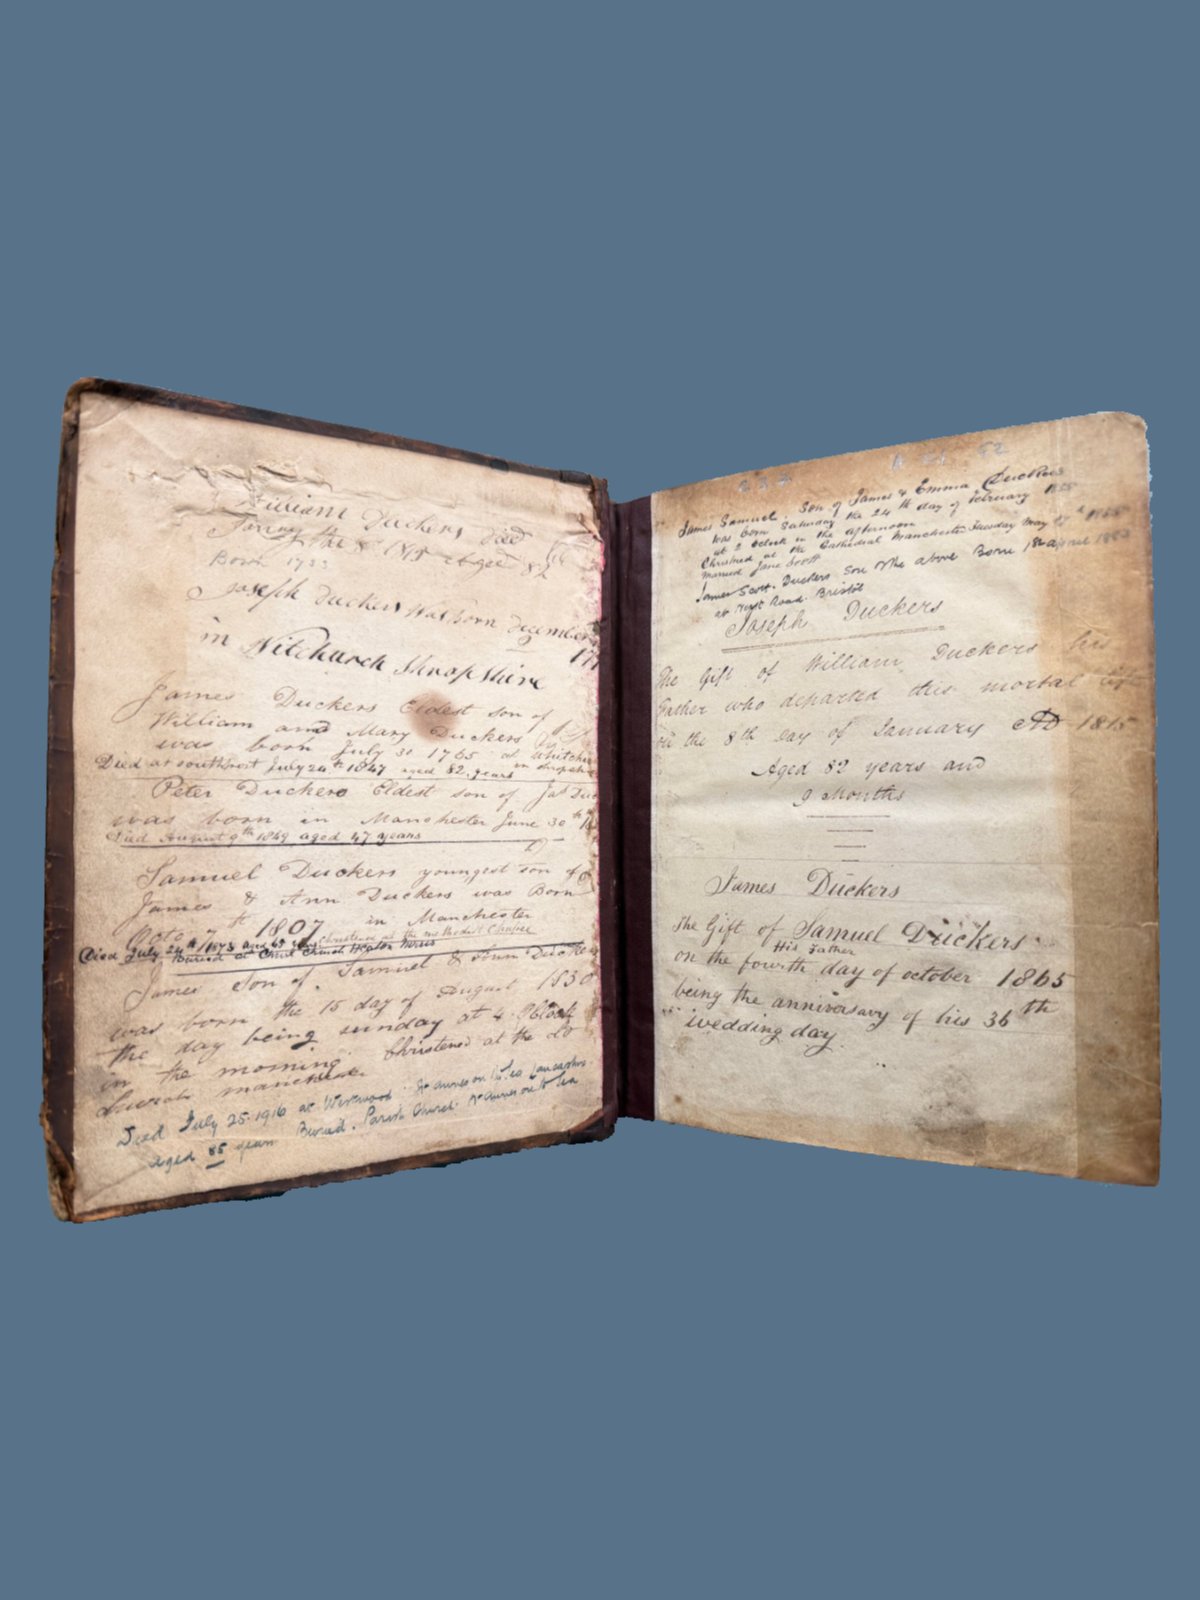 William Duckers Died
the 8 1815 Aged 82
Born 1733
Joseph Duckers Was born December
in Witchurch Shropshire
James Duckers Eldest son of
William and Mary Duckers
was born July 30 1765 at Whitchu
Died at Southport July 24th 1847 aged 82 years in Shropshire
Peter Duckers Eldest son of Jas Duc
was born in Manchester June 30th
Died August 9th 1849 aged 47 years
Samuel Duckers youngest son of
James & Ann Duckers was Born
th 1807 in Manchester
Christened at the methodist Chapel
Died July 24th 1873 aged 65 years
Buried at Christ Church Heaton Norris
James Son of Samuel & Ann Duckers
was born the 15 day of August 1830
the day being sunday at 4 O'Clock
in the morning Christened at the
Church
Died July 25-1916 at St Annes on the Sea Lancashire
aged 85 years Buried Parish Church St Annes on the Sea
James Samuel, Son of James & Emma Duckers
was born Saturday the 24th day of February 1855
at 2 Oclock in the afternoon
Christned at the Cathedral Manchester Tuesday May 1855
Married Jane Scott
James Scott Duckers Son of the above Born
at Road Bristol
Joseph Duckers
The Gift of William Duckers his
Father who departed this mortal life
on the 8th day of January AD 1815
Aged 82 years and
9 Months
James Duckers
The Gift of Samuel Duckers
His Father
on the fourth day of october 1865
being the anniversary of his 36th
wedding day